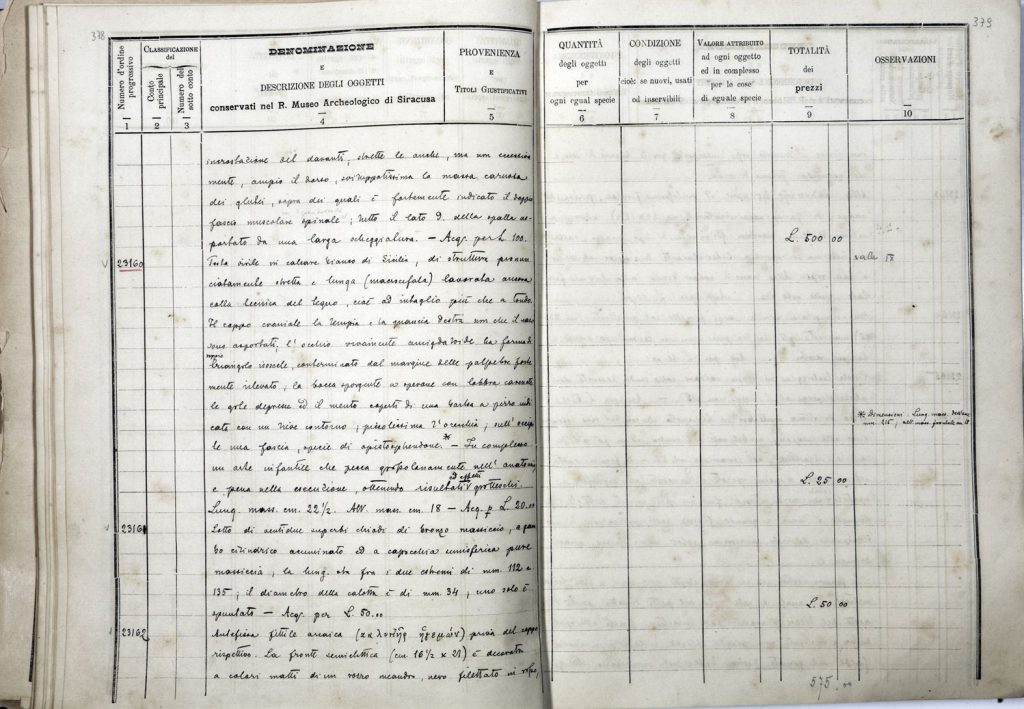 378
Numero d'ordine progressivo
1
CLASSIFICAZIONE
del
Conto principale
2
Numero del sotto conto
3
DENOMINAZIONE
E
DESCRIZIONE DEGLI OGGETTI
conservati nel R. Museo Archeologico di Siracusa
4
PROVENIENZA
E
TITOLI GIUSTIFICATIVI
5
incrostazione del davanti, strette le anche, ma non eccessiva
mente, ampio il dorso, sviluppatissima la massa carnosa
dei glutei, sopra dei quali è fortemente indicato il doppio
fascio muscolare spinale; tutto il lato d. della spalla as-
portato da una larga scheggiatura. — Acq. per L. 100.
23160
Testa virile in calcare bianco di Sicilia, di struttura pronun
ciatamente stretta e lunga (macrocefala) lavorata ancora
colla tecnica del legno, cioè ad intaglio più che a tondo.
Il cappo craniale la tempia e la guancia destra non che il naso
sono asportati; l'occhio vivamente amigdaloide ha forma di
triangolo isoscele, conterminato dal margine delle palpebre forte
mente rilevato, la bocca sporgente, con labbra carnose
le gote depresse ed il mento coperti di una barba a pizzo indi
cata con un lieve contorno; piccolissima l'orecchia; sull'occipi
te una fascia, specie di opistosphendone.* — In complesso
un'arte infantile che pecca grossolanamente nell'anatomia
e pena nella esecuzione, ottenendo risultati ed effetti grotteschi.
Lung. mass. cm. 22½. Alt. mass. cm. 18 — Acq. p. L. 20.00
23161
Lotto di ventidue superbi chiodi di bronzo massiccio, a gam
bo cilindrico acuminato ed a capocchia emisferica pure
massiccia, la lung. sta fra i due estremi di mm. 112 e
135; il diametro della calotta è di mm. 34, uno solo è
spuntato — Acq. per L. 50.00
23162
Antefissa fittile arcaica (καλυπτὴρ ἡγεμών) priva del coppo
rispettivo. La fronte semiellittica (cm 16½ x 21) è decorata
a colori matti di un rosso meandro, nero filettato in rosso,
379
QUANTITÀ
degli oggetti
per
ogni egual specie
6
CONDIZIONE
degli oggetti
cioè: se nuovi, usati
od inservibili
7
VALORE ATTRIBUITO
ad ogni oggetto
ed in complesso
per le cose
di eguale specie
8
TOTALITÀ
dei
prezzi
9
OSSERVAZIONI
10
L. 500 00
sala IX
* Dimensioni. Lung. mass.
mm. 215;
L. 25 00
L. 50 00
575.00